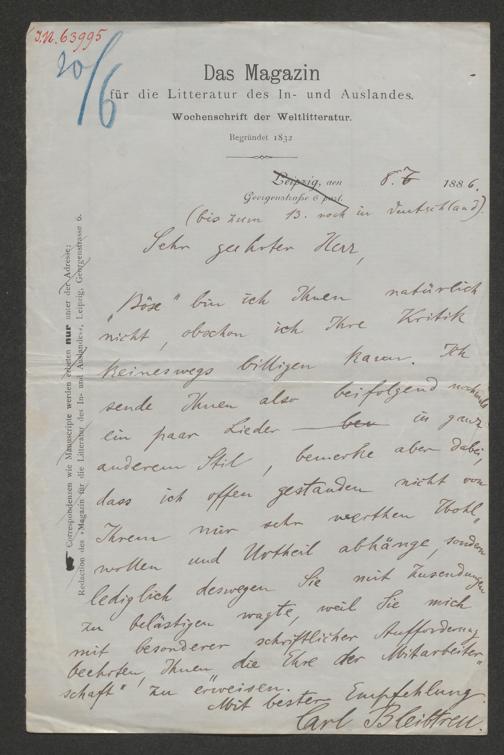 J.N. 63995
20/6
Das Magazin
für die Litteratur des In- und Auslandes.
Wochenschrift der Weltlitteratur.
Begründet 1832
Leipzig, den 8. 6 1886.
Georgenstraße 6 part.
(bis zum 13. noch in Deutschland).
Sehr geehrter Herr,
„Böse" bin ich Ihnen natürlich
nicht, obschon ich Ihre Kritik
keineswegs billigen kann. Ich
sende Ihnen also beifolgend nochmals
ein paar Lieder in ganz
anderem Stil, bemerke aber dabei,
dass ich offen gestanden nicht von
Ihrem mir sehr werthen Wohl-
wollen und Urtheil abhänge, sondern
lediglich deswegen Sie mit Zusendungen
zu belästigen wagte, weil Sie mich
mit besonderer schriftlicher Aufforderung
beehrten, Ihnen die Ehre der „Mitarbeiter-
schaft" zu erweisen.
Mit bester Empfehlung
Carl Bleibtreu.
Correspondenzen wie Manuscripte werden erbeten nur unter der Adresse:
Redaction des »Magazin für die Litteratur des In- und Auslandes«, Leipzig, Georgenstrasse 6.